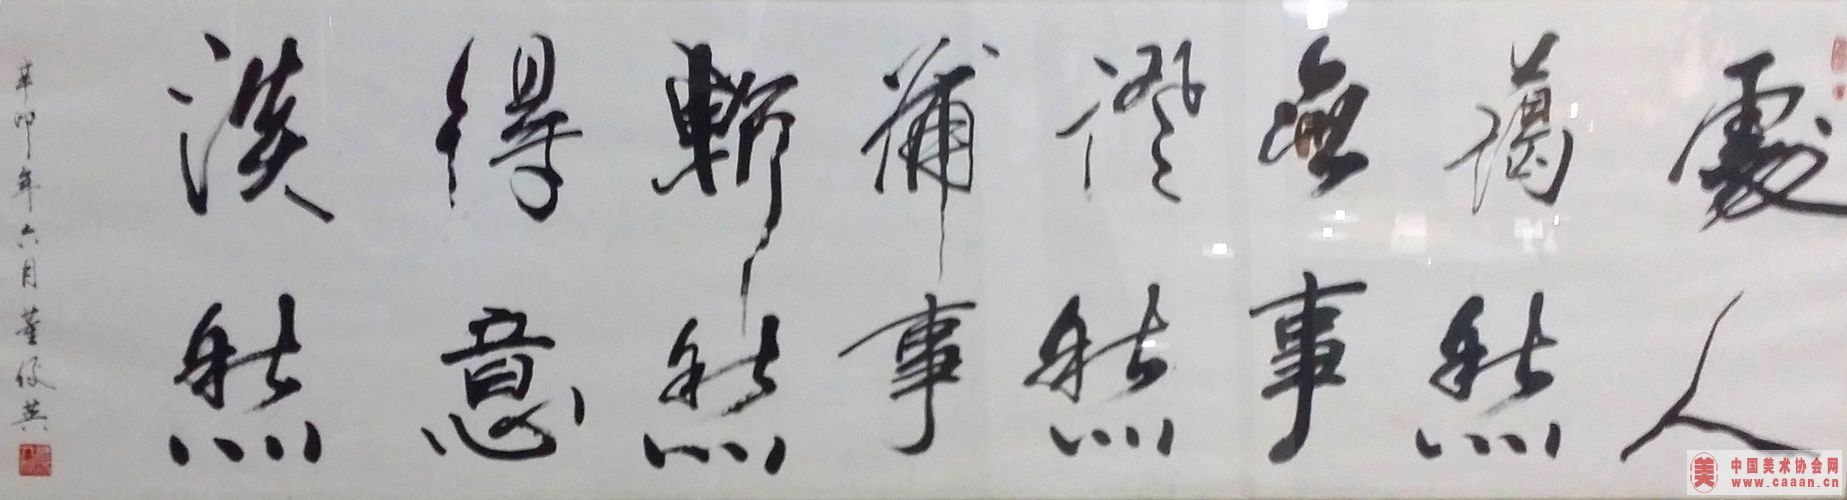 處人
藹然
無事
澄然
事
斬然
得意
淡然
辛卯年六月董俊英
美
中国美术协会网
www.caaan.cn